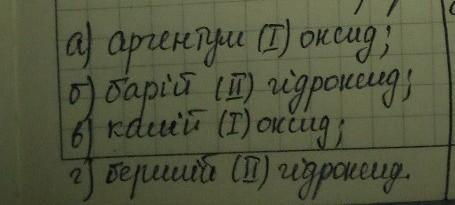 а) аргентум (I) оксид;
б) барій (II) гідроксид;
в) калій (I) оксид;
г) берилій (II) гідроксид.